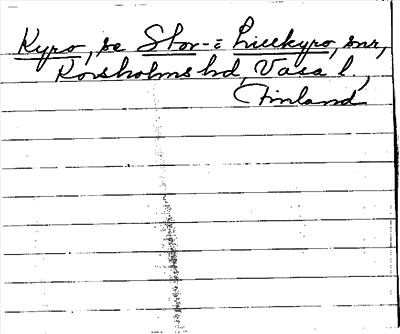 Kyro, se Stor- = Lillkyro, snr,
Korsholms hd, Vasa l.,
Finland